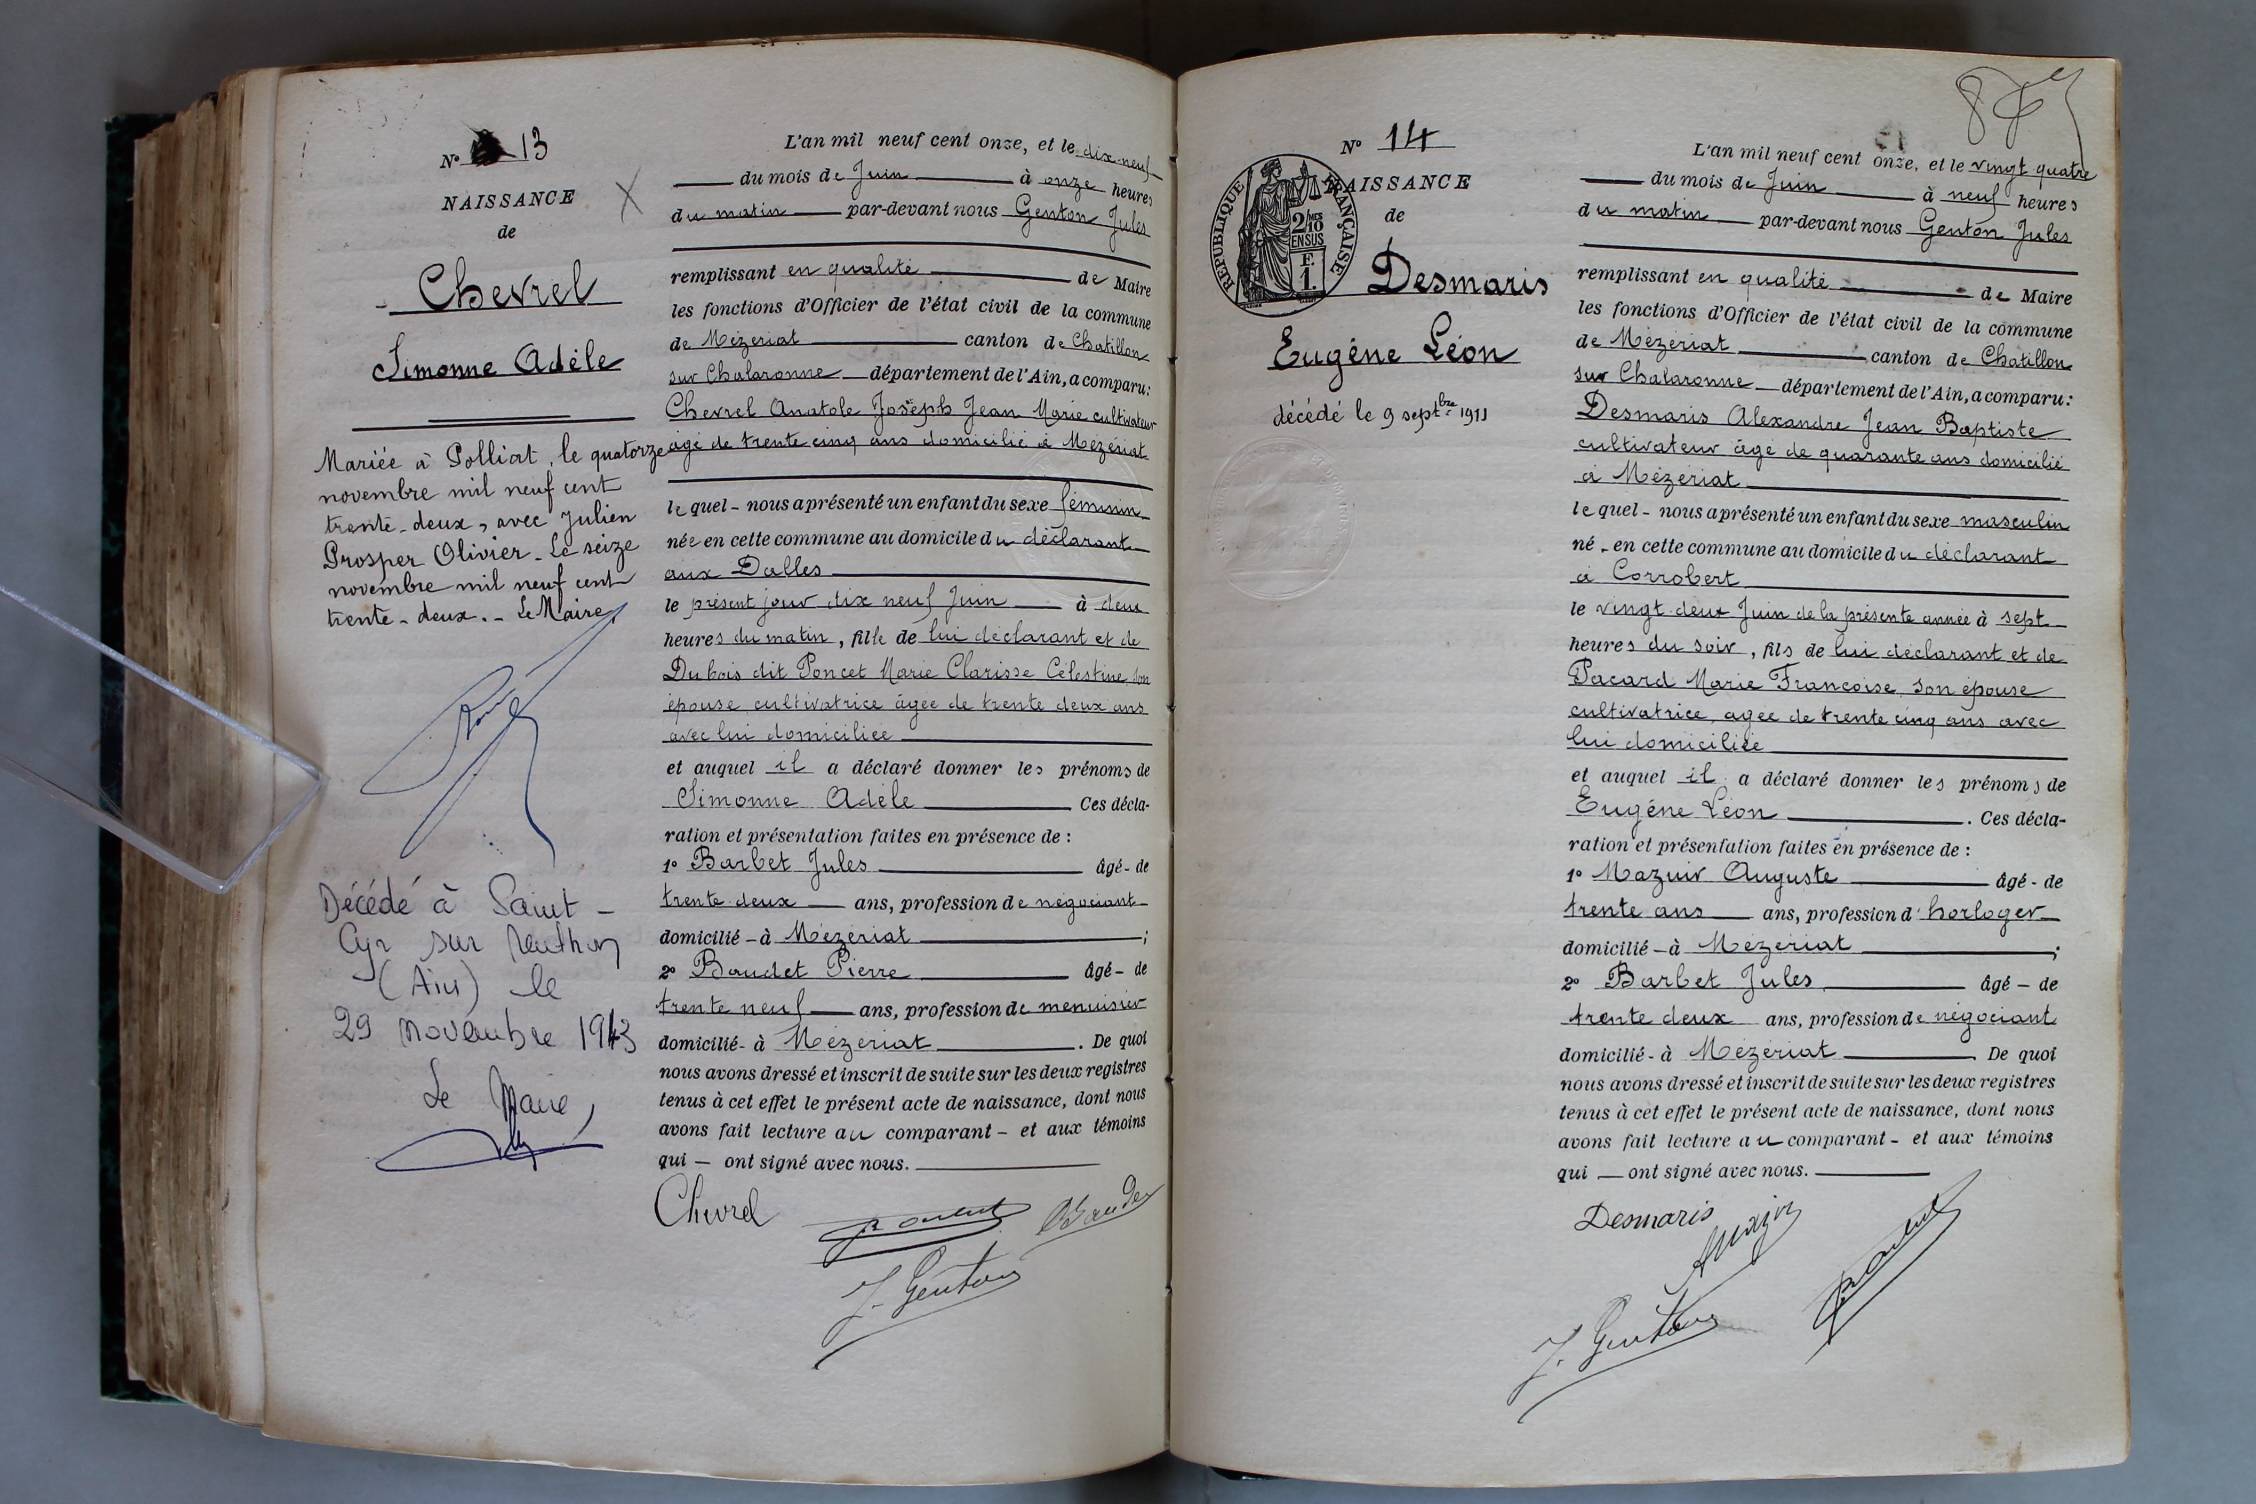 N° 13
NAISSANCE
de
Chevrel
Simonne Adèle
Mariée à Polliat, le quatorze
novembre mil neuf cent
trente-deux, avec Julien
Prosper Olivier - Le seize
novembre mil neuf cent
trente-deux. - Le Maire,
Décédé à Saint-
Cyr sur Menthon
(Ain) le
29 novembre 1943
Le Maire,
L'an mil neuf cent onze, et le dix-neuf
du mois de Juin à onze heures
du matin par-devant nous Genton Jules
remplissant en qualité de Maire
les fonctions d'Officier de l'état civil de la commune
de Mézériat canton de Chatillon
sur Chalaronne département de l'Ain, a comparu:
Chevrel Anatole Joseph Jean Marie cultivateur
âgé de trente cinq ans domicilié à Mézériat
lequel - nous a présenté un enfant du sexe féminin
née en cette commune au domicile du déclarant
aux Dalles
le présent jour dix neuf Juin à deux
heures du matin, fille de lui déclarant et de
Dubois dit Poncet Marie Clarisse Célestine son
épouse cultivatrice âgée de trente deux ans
avec lui domiciliée
et auquel il a déclaré donner les prénoms de
Simonne Adèle Ces décla-
ration et présentation faites en présence de :
1° Barbet Jules âgé - de
trente deux ans, profession de négociant
domicilié - à Mézériat ;
2° Baudet Pierre âgé - de
trente neuf ans, profession de menuisier
domicilié - à Mézériat . De quoi
nous avons dressé et inscrit de suite sur les deux registres
tenus à cet effet le présent acte de naissance, dont nous
avons fait lecture au comparant - et aux témoins
qui — ont signé avec nous.
Chevrel
Baudet
J. Genton
N° 14
NAISSANCE
de
RÉPUBLIQUE FRANÇAISE
2/10
EN SUS
F.
1.
Desmaris
Eugène Léon
décédé le 9 septbre 1911
L'an mil neuf cent onze, et le vingt quatre
du mois de Juin à neuf heures
du matin par-devant nous Genton Jules
remplissant en qualité de Maire
les fonctions d'Officier de l'état civil de la commune
de Mézériat canton de Chatillon
sur Chalaronne département de l'Ain, a comparu:
Desmaris Alexandre Jean Baptiste
cultivateur âgé de quarante ans domicilié
à Mézériat
lequel - nous a présenté un enfant du sexe masculin
né - en cette commune au domicile du déclarant
à Corrobert
le vingt-deux Juin de la présente année à sept
heures du soir, fils de lui déclarant et de
Pacard Marie Françoise son épouse
cultivatrice, agée de trente cinq ans avec
lui domiciliée
et auquel il a déclaré donner les prénoms de
Eugène Léon . Ces décla-
ration et présentation faites en présence de :
1° Mazuir Auguste âgé - de
trente ans ans, profession d'horloger
domicilié - à Mézériat ;
2° Barbet Jules âgé - de
trente deux ans, profession de négociant
domicilié - à Mézériat . De quoi
nous avons dressé et inscrit de suite sur les deux registres
tenus à cet effet le présent acte de naissance, dont nous
avons fait lecture au comparant - et aux témoins
qui — ont signé avec nous.
Desmaris
J. Genton